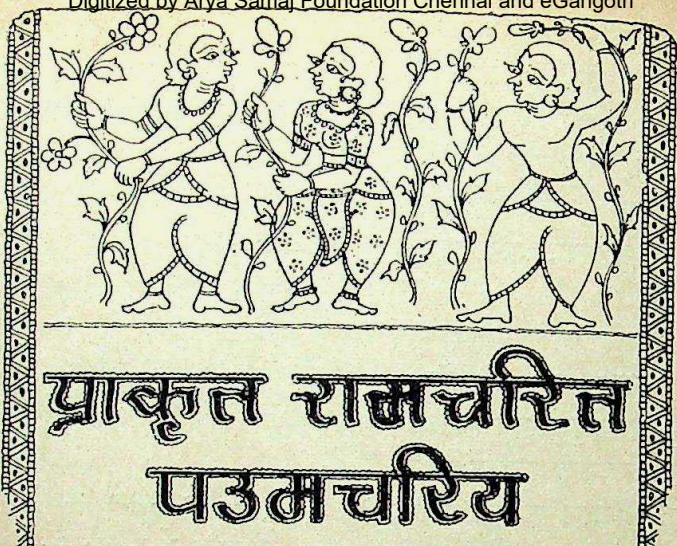 Digitized by Arya Samaj Foundation Chennai and eGangotri
प्राकृत रामचरित
पउमचरिय